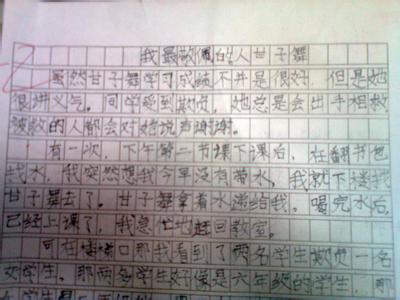 我最敬佩的人甘子舞
虽然甘子舞学习成绩不并是很好，但是她
很讲义气。同学受到欺负，她总是会出手相救
被救的人都会对她说声谢谢。
有一次，下午第二节课下课后，在翻书包
找水，我突然想我今早没有带水，我就下楼找
甘子舞去了。甘子舞拿着水递给我。喝完水后，
已经上课了，我急忙地赶回教室。
可在楼梯口那我看到了两名学生欺负一名
女学生，那两名学生好像是六年级的学生，那
学生是